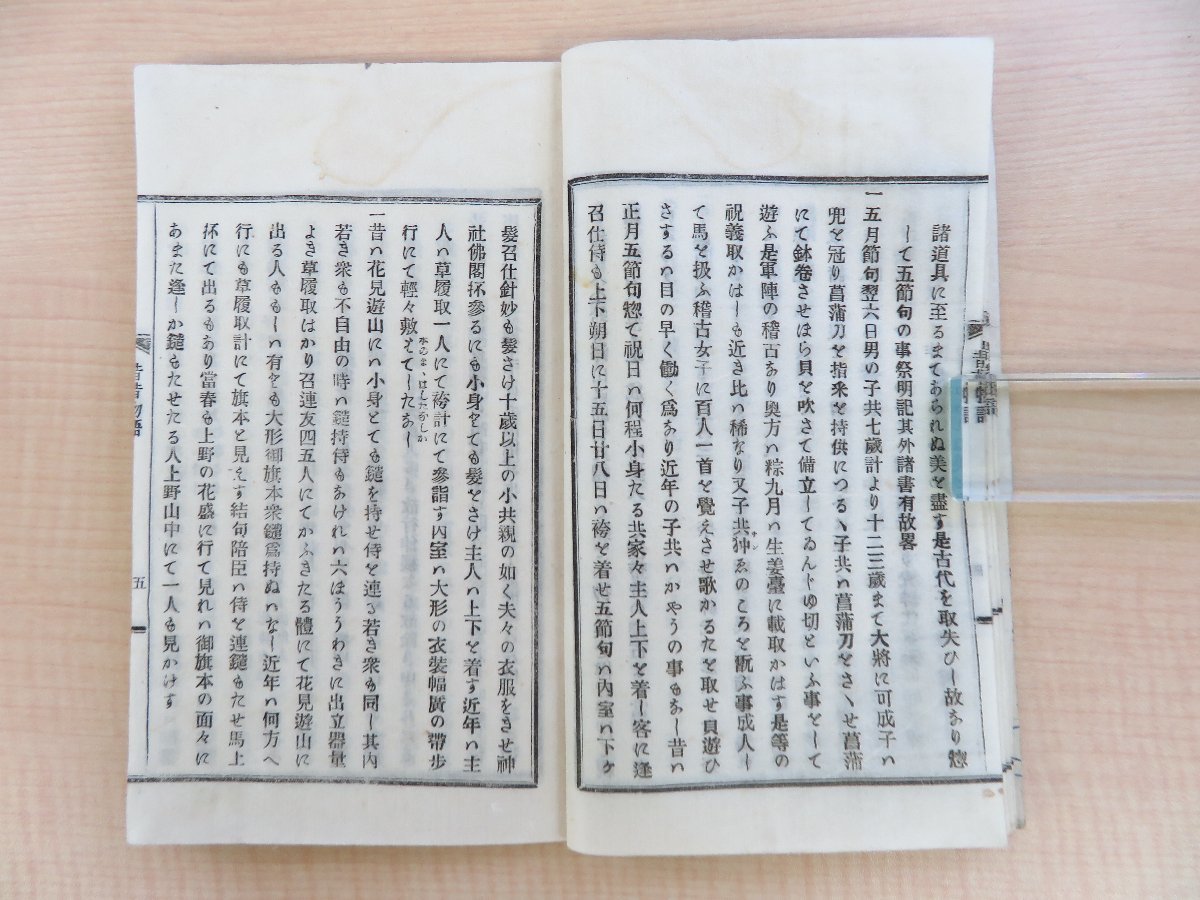 諸道具に至るまてあられぬ美を盡す是古代を取失ひし故なり惣
して五節句の事祭明記其外諸書有故畧
一五月節句翌六日男の子共七歳計より十二三歳まて大將に可成子ハ
兜を冠り菖蒲刀を指釆を持供につるゝ子共ハ菖蒲刀をさゝせ菖蒲
にて鉢卷させほら貝を吹さて備立してゐんじゆ切といふ事をして
遊ふ是軍陣の稽古なり奥方ハ粽九月ハ生姜臺に載取かはす是等の
祝義取かはしも近き比ハ稀なり又子共狆ゑのころを翫ふ事成人し
て馬を扱ふ稽古女子に百人一首を覺えさせ歌かるたを取せ貝遊ひ
さするハ目の早く働く爲なり近年の子共ハかやうの事もなし昔ハ
正月五節句惣て祝日ハ何程小身たる共家々主人上下を着し客に逢
召仕侍も上下朔日に十五日廿八日ハ袴を着せ五節句ハ內室ハ下ヶ
髮召仕針妙も髮さけ十歲以上の小共親の如く夫々の衣服をきせ神
社佛閣抔參るにも小身をても髮をさけ主人ハ上下を着す近年ハ主
人ハ草履取一人にて袴計にて參詣す內室ハ大形の衣裝幅廣の帶步
行にて輕々敷えてしたなし
一昔ハ花見遊山にハ小身とても鑓を持せ侍を連る若き衆も同し其內
若き衆も不自由の時ハ鑓持侍もなけれハ六ほううわきに出立器量
よき草履取はかり召連友四五人にてかふきたる體にて花見遊山に
出る人ももしハ有をも大形御旗本衆鑓爲持ぬハなし近年ハ何方へ
行にも草履取計にて旗本と見えす結句陪臣ハ侍を連鑓もたせ馬上
抔にて出るもあり當春も上野の花盛に行て見れハ御旗本の面々に
あまた逢しか鑓もたせたる人上野山中にて一人も見かけす
昔昔物語
五